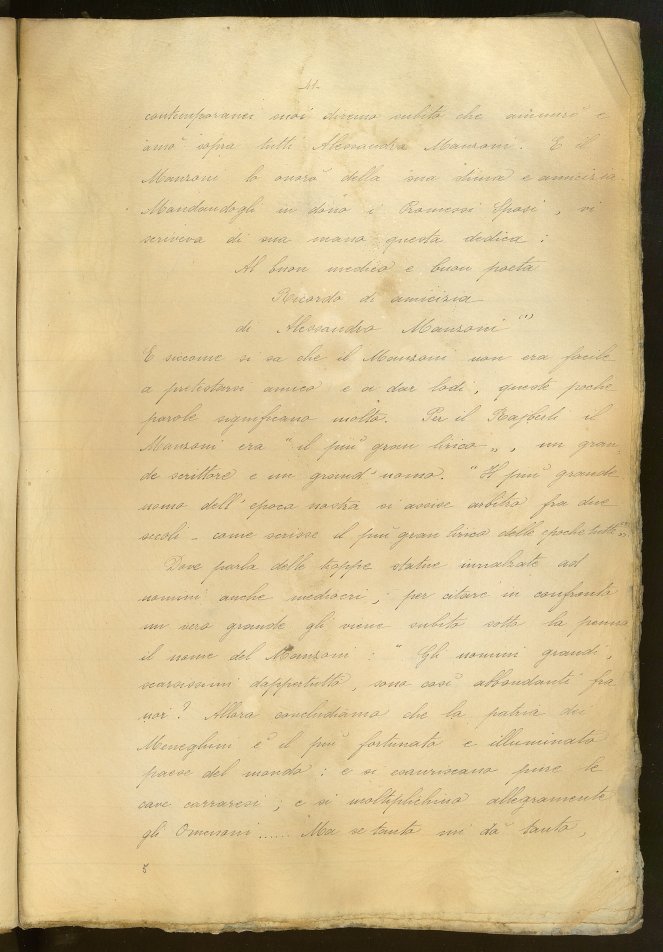 -41-
contemporanei suoi diremo subito che ammirò e
amò sopra tutti Alessandro Manzoni. E il
Manzoni lo onorò della sua stima e amicizia.
Mandandogli in dono i Promessi Sposi, vi
scriveva di sua mano questa dedica:
Al buon medico e buon poeta
Ricordo di amicizia
di Alessandro Manzoni" (1)
E siccome si sa che il Manzoni non era facile
a protestarsi amico e a dar lodi, queste poche
parole significano molto. Per il Rajberti il
Manzoni era "il più gran lirico", un gran-
de scrittore e un grand'uomo. "Il più grande
uomo dell'epoca nostra si assise arbitro fra due
secoli - come scrisse il più gran lirico delle epoche tutte"
Dove parla delle troppe statue innalzate ad
uomini anche mediocri, per citare in confronto
un vero grande gli viene subito sotto la penna
il nome del Manzoni: "Gli uomini grandi,
scarsissimi dappertutto, sono così abbondanti fra
noi? Allora concludiamo che la patria dei
Meneghini è il più fortunato e illuminato
paese del mondo: e si esauriscano pure le
cave carraresi; e si moltiplichino allegramente
gli Omenoni...... Ma se tanto mi dà tanto,
5